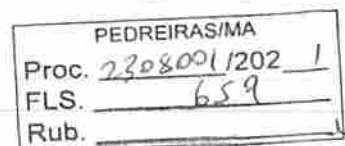 PEDREIRAS/MA
Proc. 2308001/2021
FLS. 659
Rub.